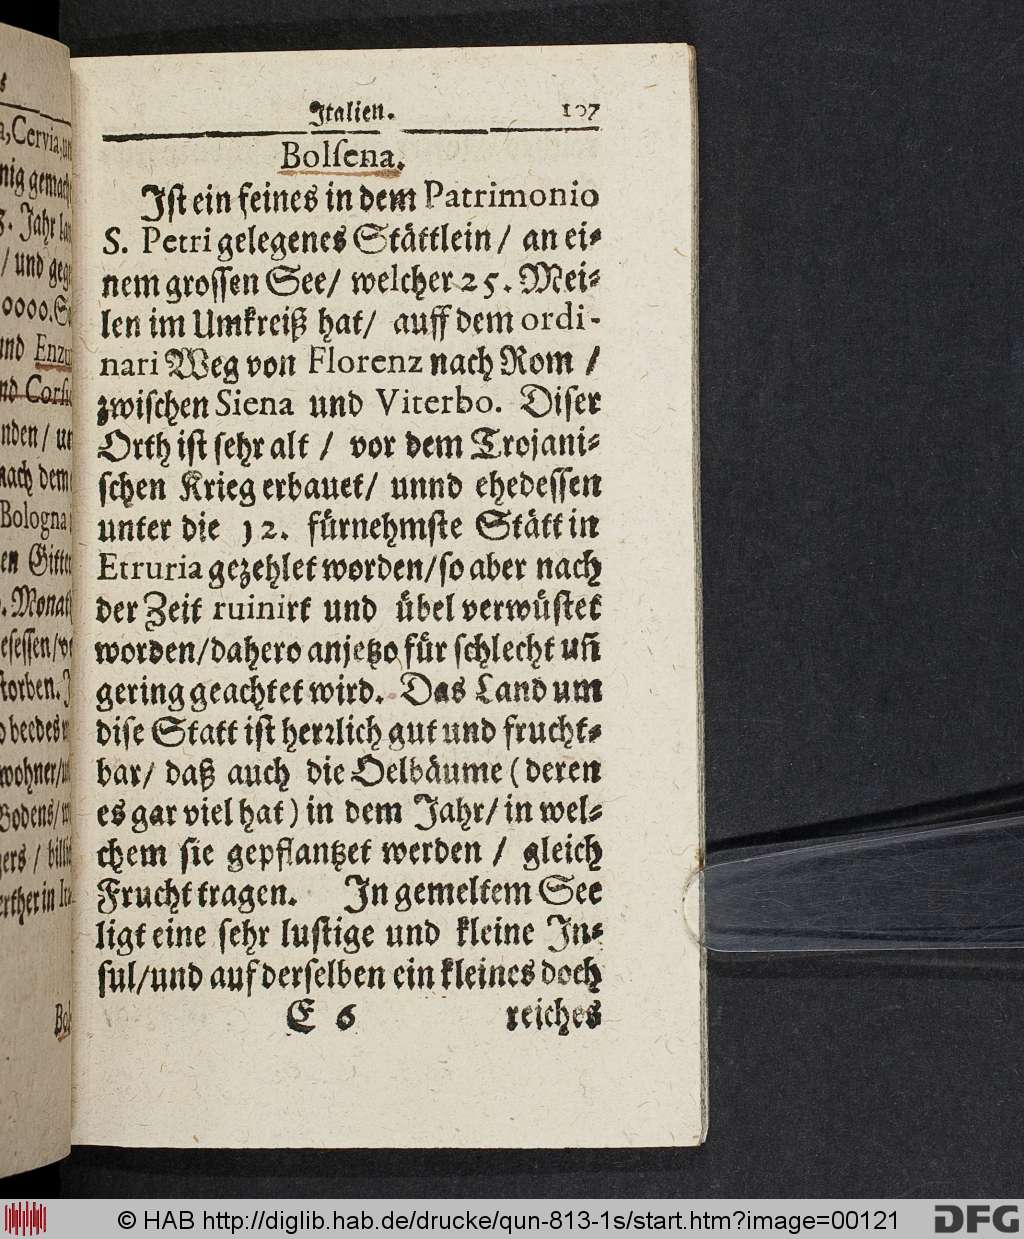 Italien. 107
Bolſena.
Iſt ein feines in dem Patrimonio
S. Petri gelegenes Stättlein / an ei⸗
nem groſſen See / welcher 25. Mei⸗
len im Umkreiß hat / auff dem ordi-
nari Weg von Florenz nach Rom /
zwiſchen Siena und Viterbo. Diſer
Orth iſt ſehr alt / vor dem Trojani⸗
ſchen Krieg erbauet / unnd ehedeſſen
unter die 12. fürnehmſte Stätt in
Etruria gezehlet worden / ſo aber nach
der Zeit ruinirt und übel verwüſtet
worden / dahero anjetzo für ſchlecht uñ
gering geachtet wird. Das Land um
diſe Statt iſt herꝛlich gut und frucht⸗
bar / daß auch die Oelbäume (deren
es gar viel hat) in dem Jahr / in wel⸗
chem ſie gepflantzet werden / gleich
Frucht tragen. In gemeltem See
ligt eine ſehr luſtige und kleine In⸗
ſul / und auf derſelben ein kleines doch
E 6 reiches
a, Cervia, un
nig gemach
8. Jahr
/ und geg
0000.
und Enzu
nd Corſi
nden / un
nach dem
Bologna
en Gitte
Monat
eſeſſen /
ſtorben.
beedes
wohner /
Bodens /
gers / bill
erther in Ita
Bol
© HAB http://diglib.hab.de/drucke/qun-813-1s/start.htm?image=00121
DFG